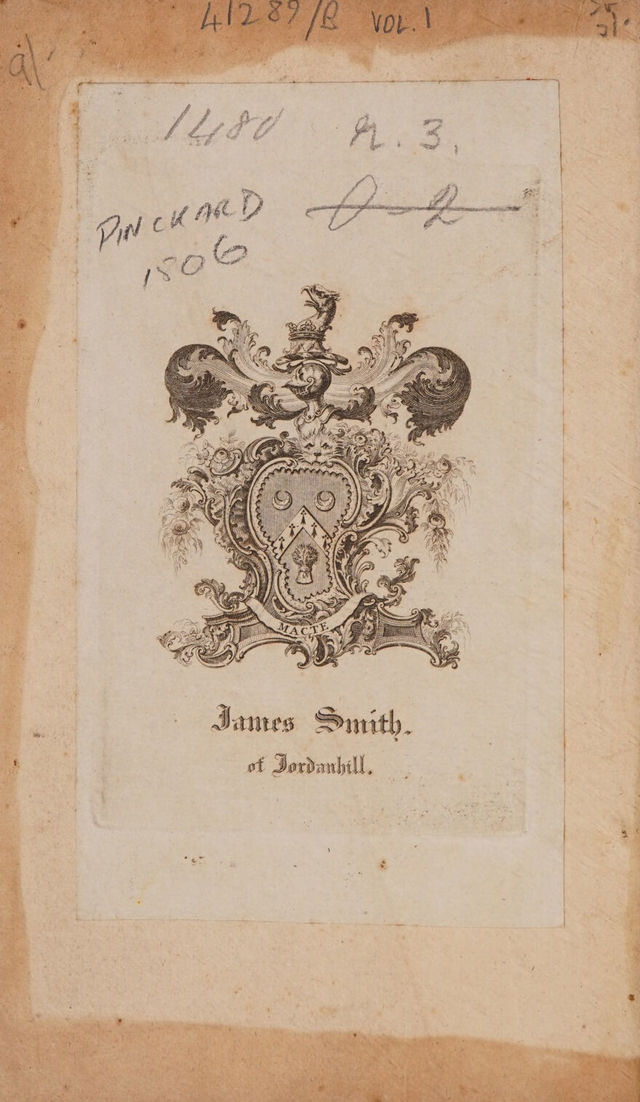 41289/B VOL.1
1480 R. 3.
PINCKARD
1506
O-2
MACTE
James Smith.
of Jordanhill.